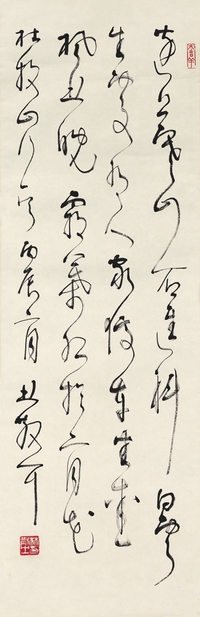 遠上寒山石徑斜白雲
生處有人家停車坐愛
楓林晚霜葉紅於二月花
杜牧山行丙辰二月林散耳